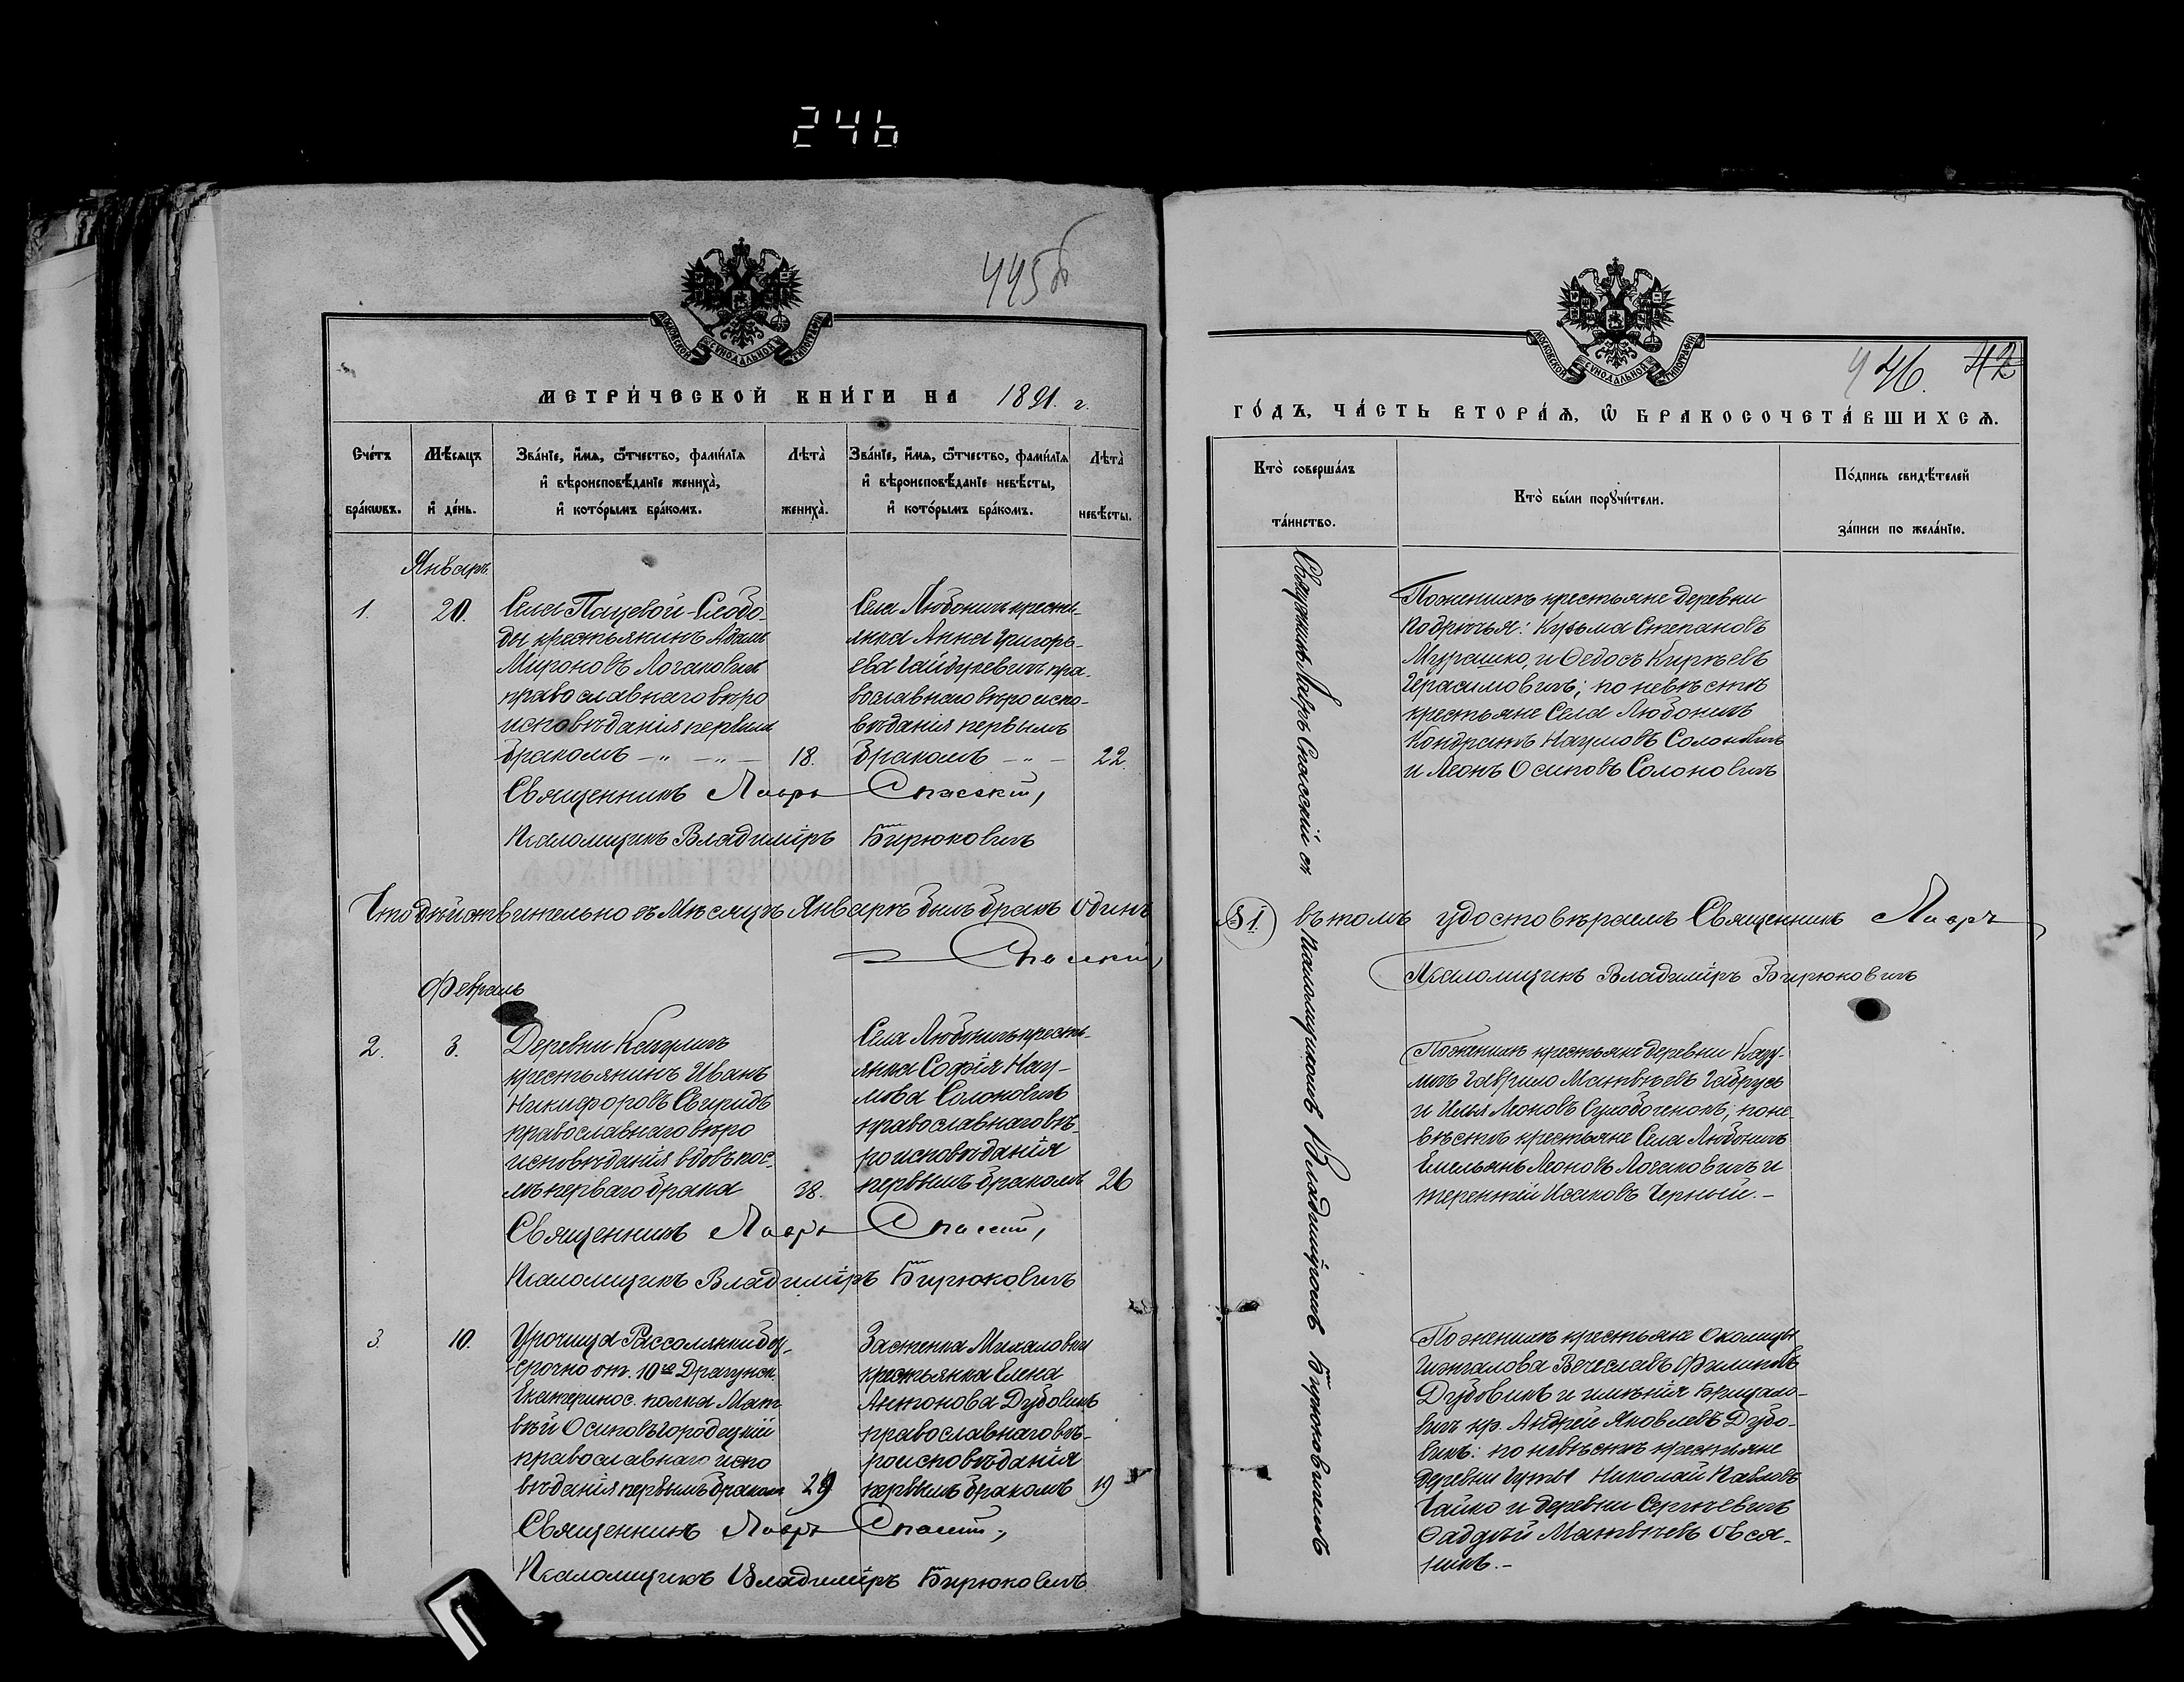 246
445б
МОСКОВСКОЙ СѴНОДАЛЬНОЙ ТИПОГРАФІИ
МЕТРИ́ЧЕСКОЙ КНИ́ГИ НА 1891. г.
Сче́тъ бра́кѡвъ.
Мѣ́сяцъ и҆ де́нь.
Зва́нїе, и҆́мя, ѻ҆́тчество, фами́лїя
и҆ вѣроисповѣ́данїе жениха̀,
и҆ кото́рымъ бра́комъ.
Лѣта̀ жениха̀.
Зва́нїе, и҆́мя, ѻ҆́тчество, фами́лїя
и҆ вѣроисповѣ́данїе невѣ́сты,
и҆ кото́рымъ бра́комъ.
Лѣта̀ невѣ́сты.
Январь.
1.
20.
Села Пацевой-Слобо-
ды крестьянинъ Адамъ
Мироновъ Логаковичъ
православнаго вѣро
исповѣданія первымъ
бракомъ —„ —„ —
18.
Села Любоничъ кресть-
янка Анна Григорь-
ева Гайдукевичъ пра-
вославнаго вѣроиспо-
вѣданія первымъ
бракомъ —„ —
22.
Священникъ Лавръ Спасскій,
Псаломщикъ Владиміръ Бирюковичъ
Что дѣйствительно въ Мѣсяцѣ Январѣ былъ бракъ Одинъ
Спасскій,
Февраль
2.
3.
Деревни Кацуличъ
крестьянинъ Иванъ
Никифоровъ Свиридъ
православнаго вѣро
исповѣданія вдовъ пос-
лѣ перваго брака
38.
Села Любоничъ кресть-
янка Софія Нау-
мова Солоновичъ
православнаго вѣ-
роисповѣданія
первымъ бракомъ
26
Священникъ Лавръ Спасскій,
Псаломщикъ Владиміръ Бирюковичъ
3.
10.
Урочища Рассолянки без-
срочно от. 10го Драгунск.
Екатеринос. полка Мат-
вѣй Осиповъ Городецкій
православнаго испо
вѣданія первымъ бракомъ
29
Застенка Михаловки
крестьянка Елена
Антонова Дубовикъ
православнаго вѣ-
роисповѣданія
первымъ бракомъ
19
Священникъ Лавръ Спасскій,
Псаломщикъ Владиміръ Бирюковичъ
МОСКОВСКОЙ СѴНОДАЛЬНОЙ ТИПОГРАФІИ
446. 42
ГО́ДЪ, ЧА́СТЬ ВТОРА́Я, Ѡ҆ БРАКОСОЧЕТА́ВШИХСЯ.
Кто̀ соверша́лъ
та́инство.
Кто̀ бы́ли порꙋчи́тели.
По́дпись свидѣ́телей
за́писи по жела́нїю.
Священникъ Лавръ Спасскій съ
Псаломщикомъ Владиміромъ Бирюковичемъ
По женихѣ крестьяне деревни
Подрѣчья: Кузьма Степановъ
Мурашко, и Ѳедосъ Кирѣевъ
Герасимовичъ; по невѣстѣ
крестьяне Села Любоничъ
Кондратъ Наумовъ Солоновичъ
и Леонъ Осиповъ Солоновичъ
№ 1. въ томъ удостовѣряемъ Священникъ Лавръ
Псаломщикъ Владиміръ Бирюковичъ
По женихѣ крестьяне деревни Кацу-
личъ Гаврило Матвѣевъ Габрусь
и Илья Леоновъ Слободенюкъ; по не-
вѣстѣ крестьяне Села Любоничъ
Емельянъ Леоновъ Логаковичъ и
Терентій Исаковъ Черный.—
По женихѣ крестьяне Околицы
Вечеславъ Филиповъ
Дубовикъ и имѣнія Брицало-
вичъ кр. Андрей Яковлевъ Дубо-
викъ: по невѣстѣ крестьяне
деревни Гуты Николай Павловъ
Чайко и деревни Сергѣевичъ
Ѳаддѣй Матвѣевъ Овся-
никъ.—